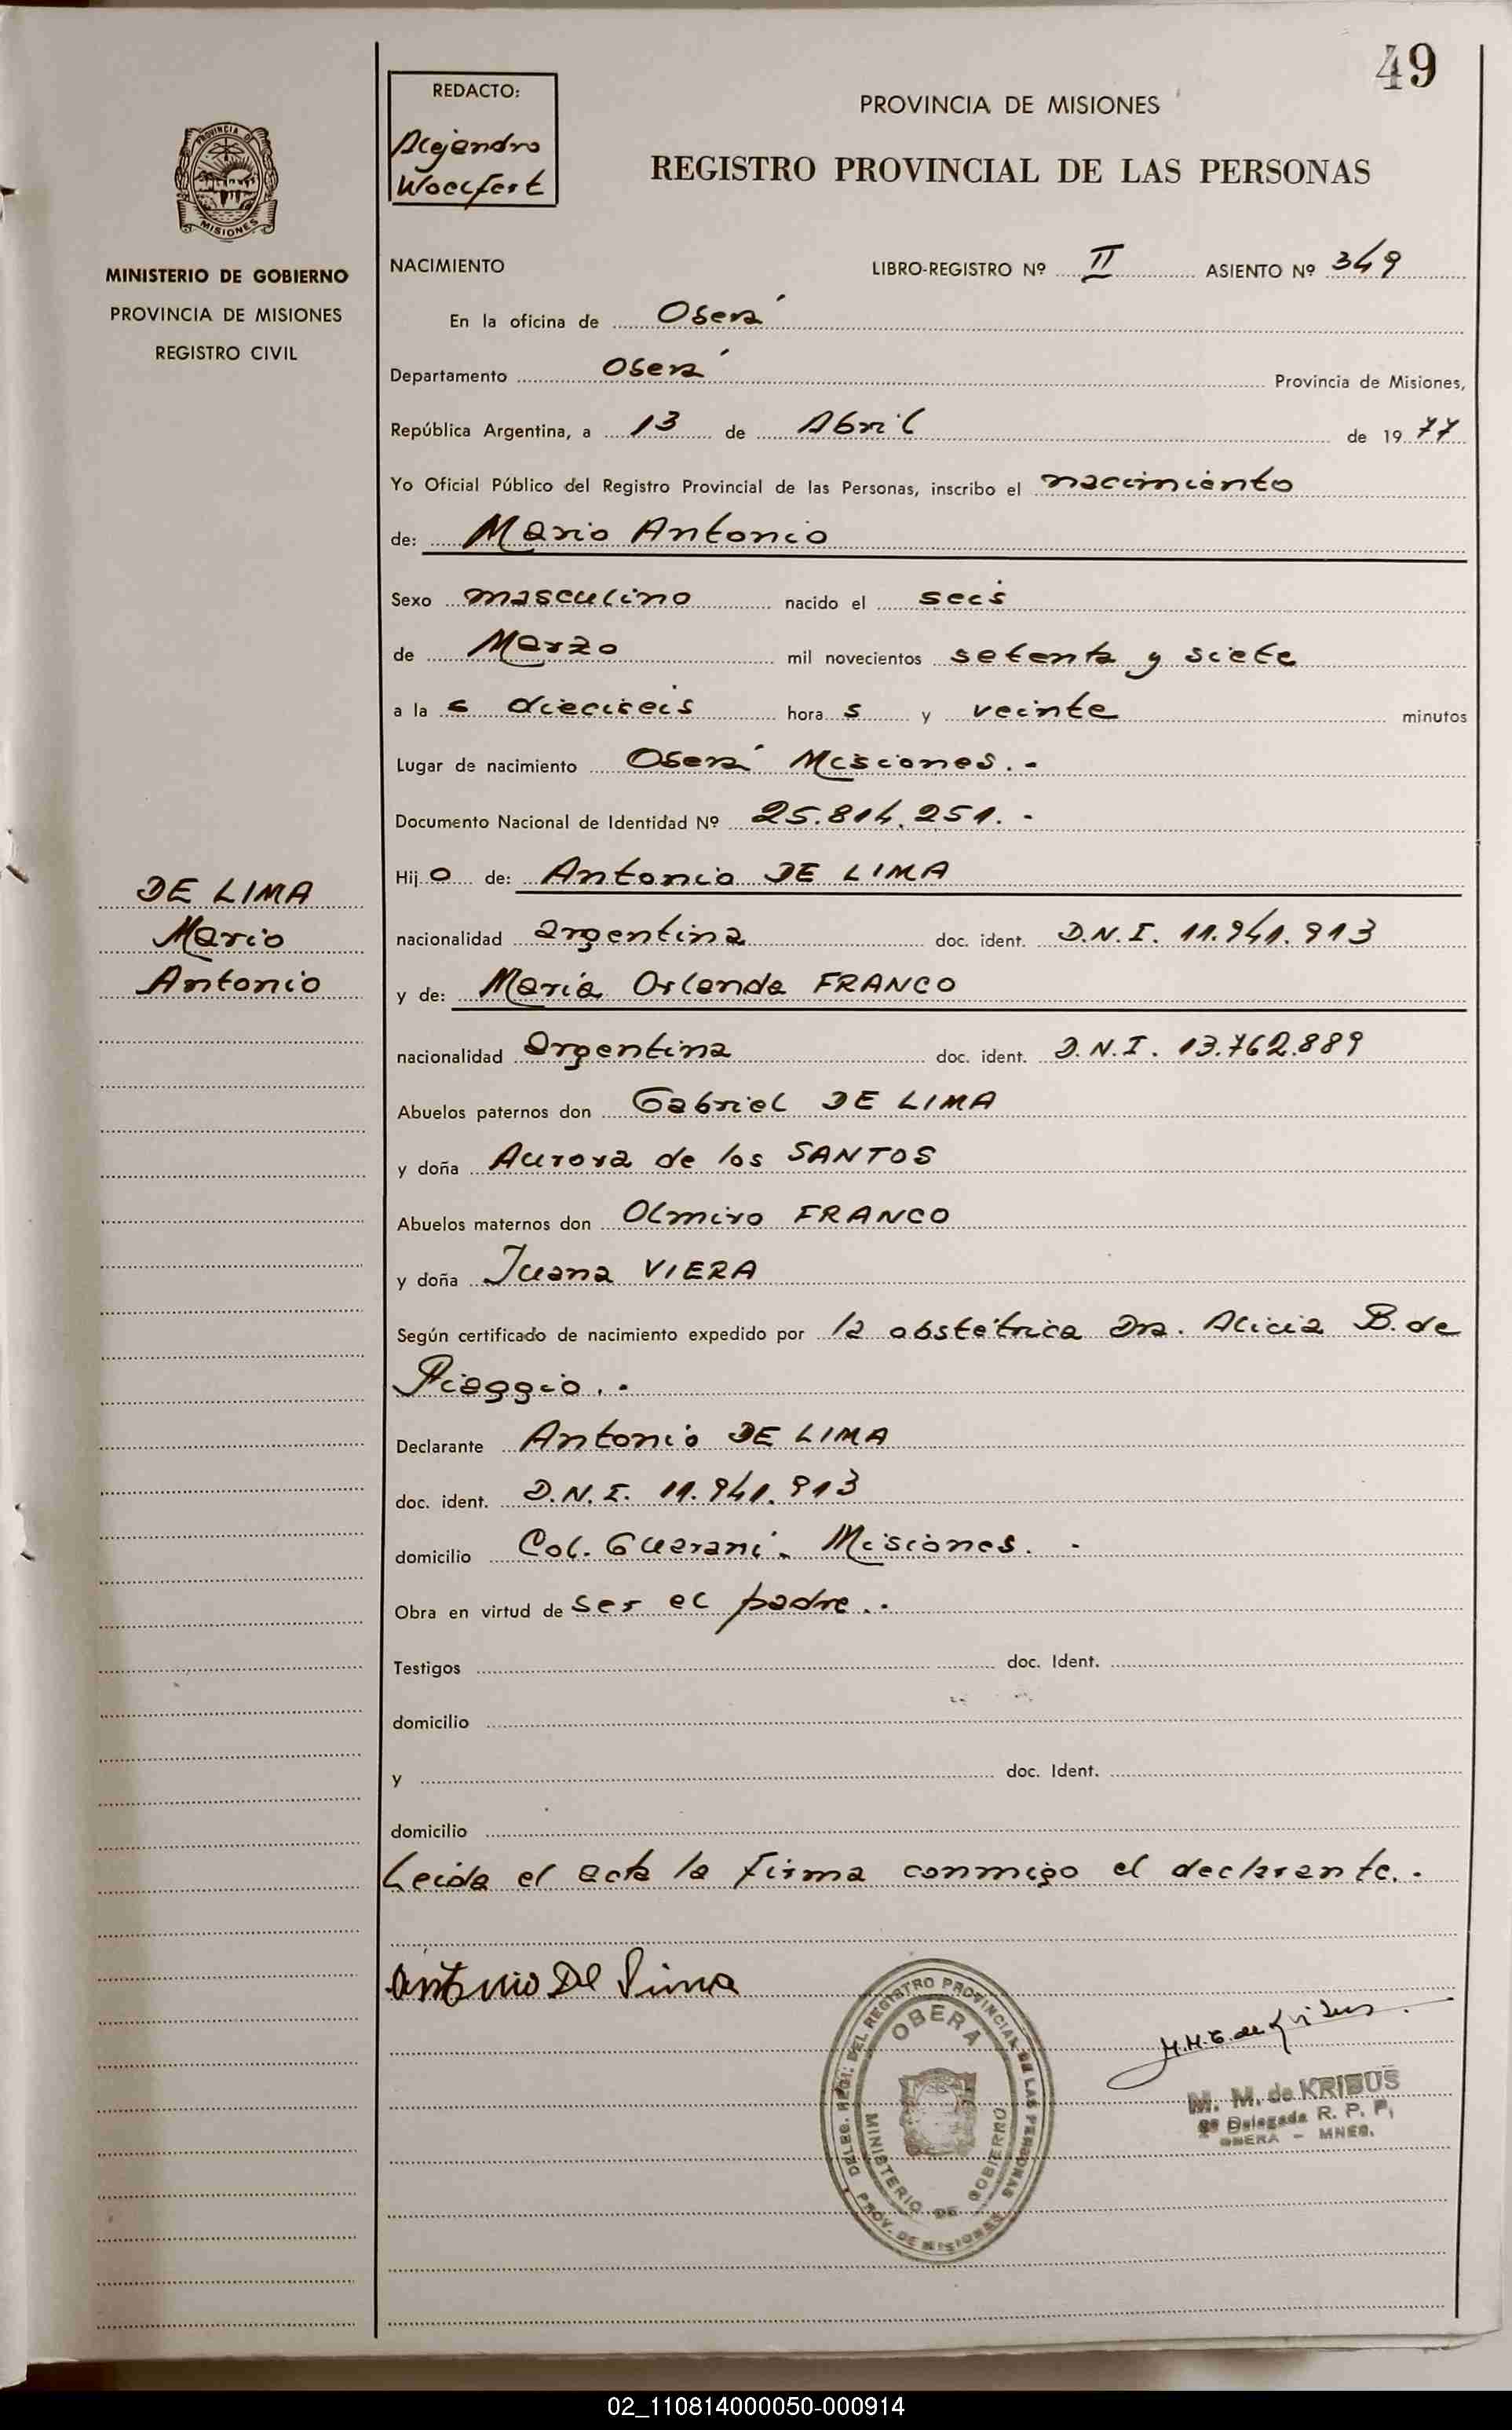 49
REDACTO:
Alejandro
Woelfert
PROVINCIA DE MISIONES
REGISTRO PROVINCIAL DE LAS PERSONAS
PROVINCIA DE
MISIONES
MINISTERIO DE GOBIERNO
PROVINCIA DE MISIONES
REGISTRO CIVIL
NACIMIENTO LIBRO-REGISTRO Nº II ASIENTO Nº 349
En la oficina de Oberá
Departamento Oberá Provincia de Misiones,
República Argentina, a 13 de Abril de 1977
Yo Oficial Público del Registro Provincial de las Personas, inscribo el nacimiento
de: Mario Antonio
Sexo masculino nacido el seis
de Marzo mil novecientos setenta y siete
a la s dieciseis hora s y veinte minutos
Lugar de nacimiento Oberá Misiones.-
Documento Nacional de Identidad Nº 25.814.251.-
Hij o de: Antonio DE LIMA
DE LIMA
Mario
Antonio
nacionalidad argentina doc. ident. D.N.I. 11.941.913
y de: María Orlanda FRANCO
nacionalidad Argentina doc. ident. D.N.I. 13.762.889
Abuelos paternos don Gabriel DE LIMA
y doña Aurora de los SANTOS
Abuelos maternos don Olmiro FRANCO
y doña Juana VIERA
Según certificado de nacimiento expedido por la obstétrica Dra. Alicia B. de
Piaggio.-
Declarante Antonio DE LIMA
doc. ident. D.N.I. 11.941.913
domicilio Col. Guaraní. Misiones. -
Obra en virtud de ser el padre.-
Testigos doc. Ident.
domicilio
y doc. Ident.
domicilio
Leida el acta la firma conmigo el declarante.-
Antonio De Lima
DELEG. REGI. DEL REGISTRO PROVINCIAL DE LAS PERSONAS
OBERÁ
MINISTERIO DE GOBIERNO
PROV. DE MISIONES
M. M. de KRIBUS
Delegada R. P. P.
OBERA - MNES.
02_110814000050-000914